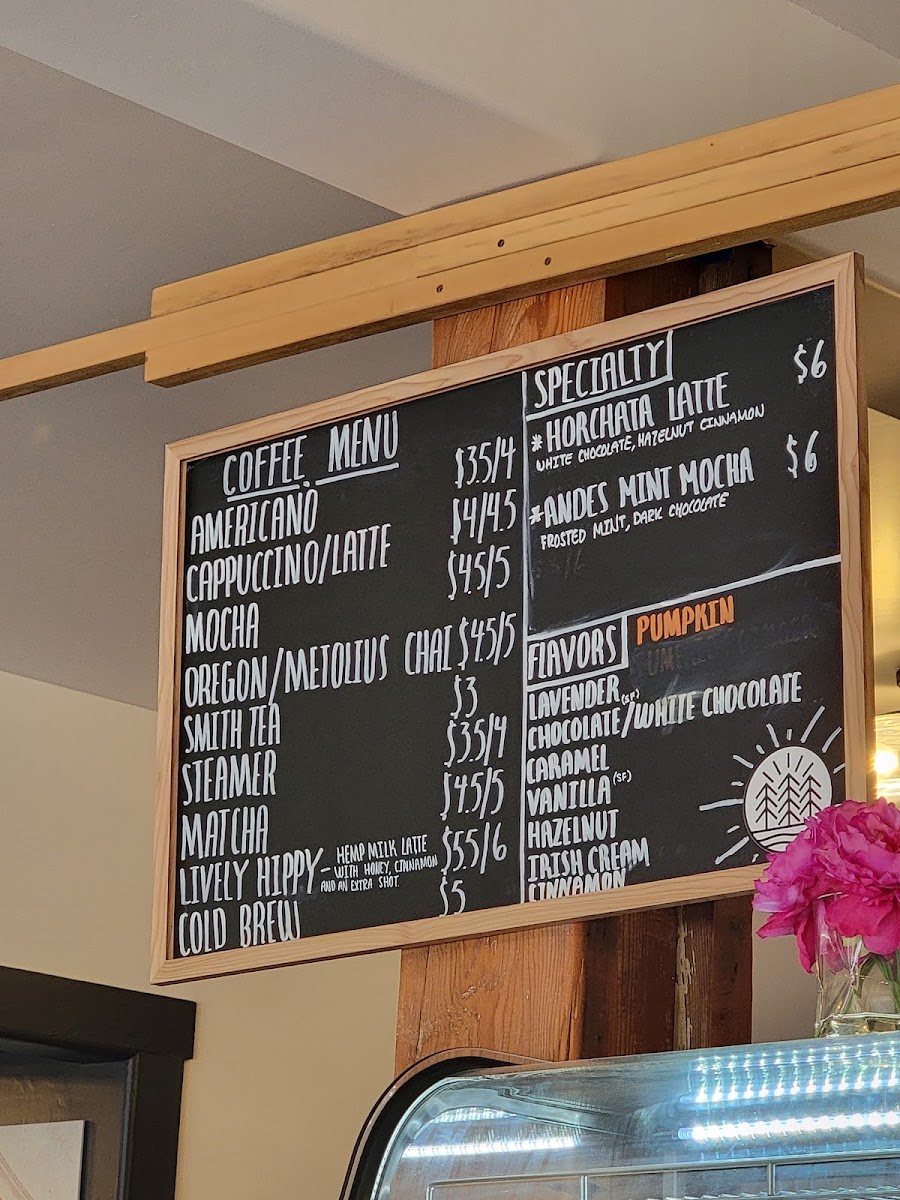 COFFEE MENU
AMERICANO $3.5/4
CAPPUCCINO/LATTE $4/4.5
MOCHA $4.5/5
OREGON/METOLIUS CHAI $4.5/5
SMITH TEA $3
STEAMER $3.5/4
MATCHA $4.5/5
LIVELY HIPPY – HEMP MILK LATTE $5.5/6
WITH HONEY, CINNAMON
AND AN EXTRA SHOT.
COLD BREW $5
SPECIALTY
*HORCHATA LATTE $6
WHITE CHOCOLATE, HAZELNUT CINNAMON
*ANDES MINT MOCHA $6
FROSTED MINT, DARK CHOCOLATE
FLAVORS PUMPKIN
LAVENDER (SF)
CHOCOLATE/WHITE CHOCOLATE
CARAMEL
VANILLA (SF)
HAZELNUT
IRISH CREAM
CINNAMON